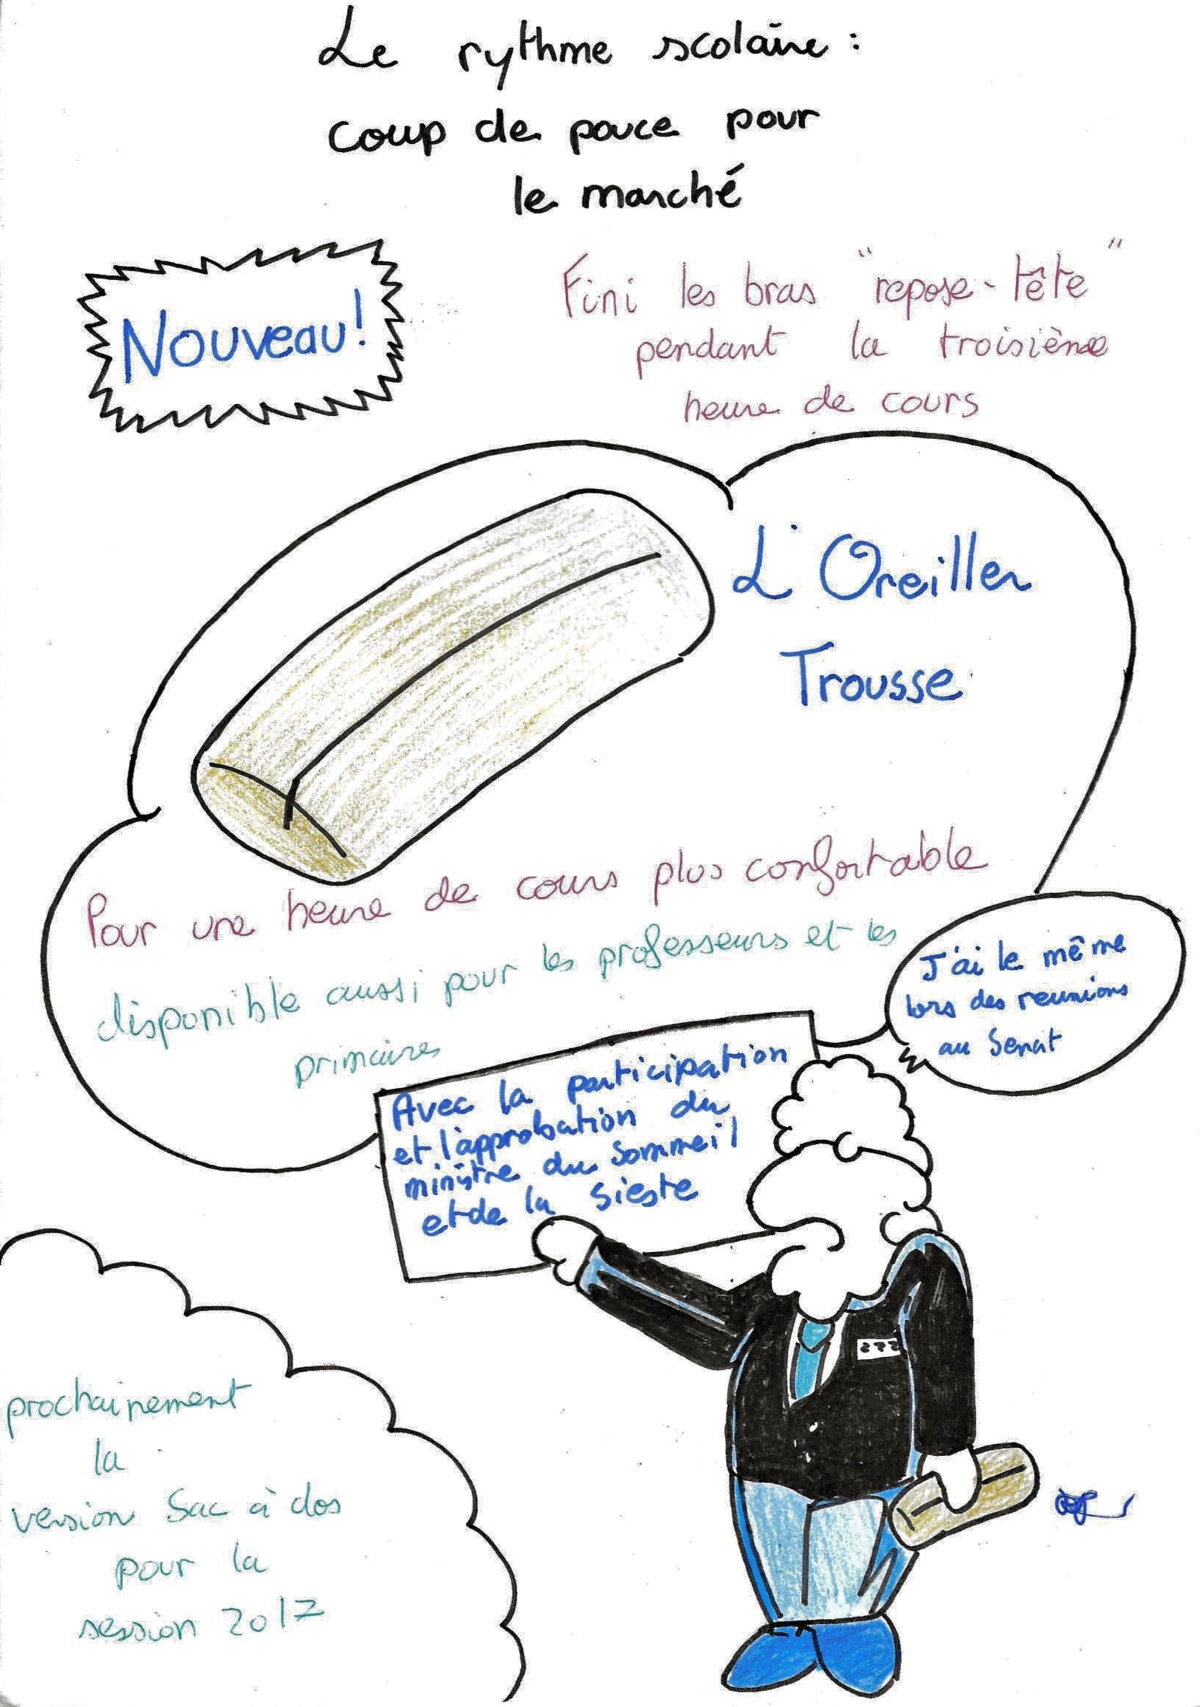 Le rythme scolaire :
coup de pouce pour
le marché
Nouveau!
Fini les bras "repose-tête"
pendant la troisième
heure de cours
L'Oreiller
Trousse
Pour une heure de cours plus confortable
disponible aussi pour les professeurs et les
primaires
J'ai le même
lors des reunions
au Senat
Avec la participation
et l'approbation du
ministre du Sommeil
et de la Sieste
prochainement
la
version Sac à dos
pour la
session 2017